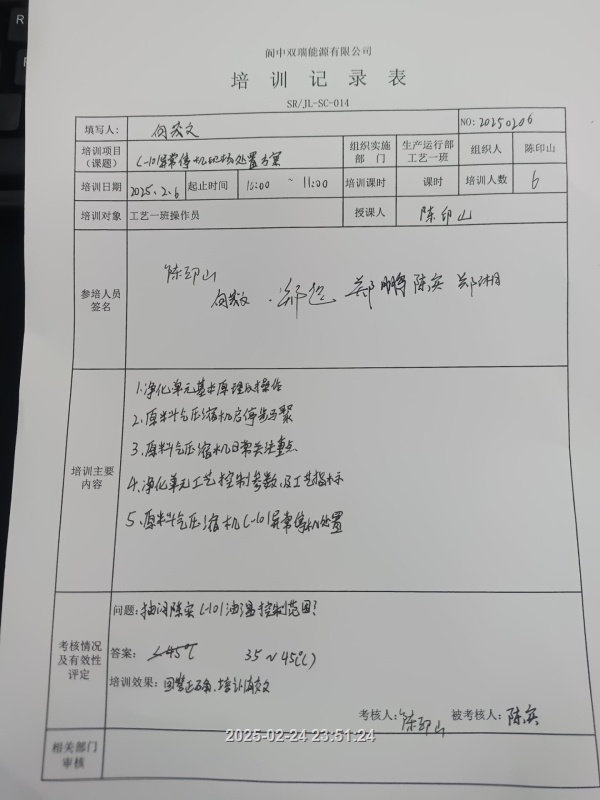 阆中双瑞能源有限公司
培训记录表
SR/JL-SC-014
填写人: 向发文 NO: 20250206
培训项目（课题） C-101异常停机的应急处置方案 组织实施部门 生产运行部工艺一班 组织人 陈印山
培训日期 2025.2.6 起止时间 10:00 ~ 11:00 培训课时 课时 培训人数 6
培训对象 工艺一班操作员 授课人 陈印山
参培人员签名
陈印山
郑鹏 陈实 郑湘
培训主要内容
1.净化单元基本原理及操作
2.原料气压缩机启停步骤
3.原料气压缩机日常关注重点
4.净化单元工艺控制参数及工艺指标
5.原料气压缩机C-101异常停机处置
考核情况及有效性评定
问题: 抽问陈实C-101油温控制范围?
答案: ≤45℃ 35~45(℃)
培训效果: 回答正确,培训有效
考核人: 陈印山 被考核人: 陈实
相关部门审核
2025-02-24 23:51:24